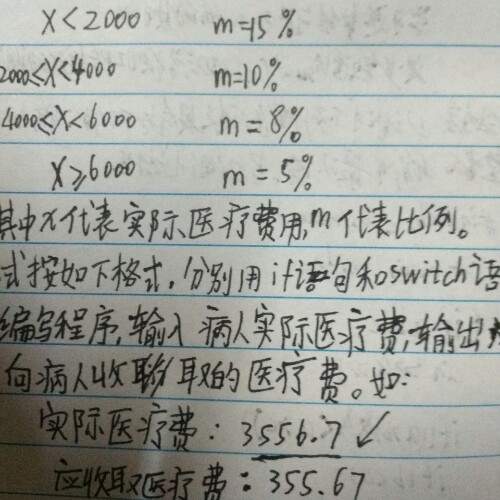 x<2000 m=15%
2000≤x<4000 m=10%
4000≤x<6000 m=8%
x≥6000 m=5%
其中x代表实际医疗费用,m代表比例。
试按如下格式,分别用if语句和switch语
编写程序,输入病人实际医疗费,输出
向病人收取的医疗费。如:
实际医疗费:3556.7↙
应收取医疗费:355.67